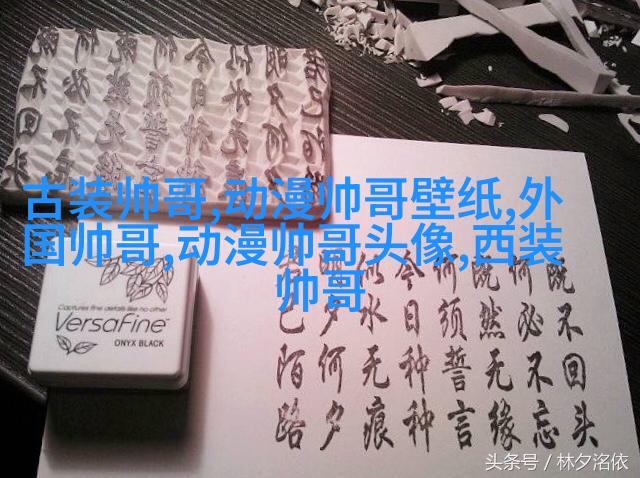 古装帅哥,动漫帅哥壁纸,外
国帅哥,动漫帅哥头像,西装
帅哥
既不回头
何必不忘
既然无缘
何须誓言
今日种种
似水无痕
明夕何夕
已陌路
Captures fine details like no other
VersaFine
ONYX BLACK
头条号 / 林夕洺依